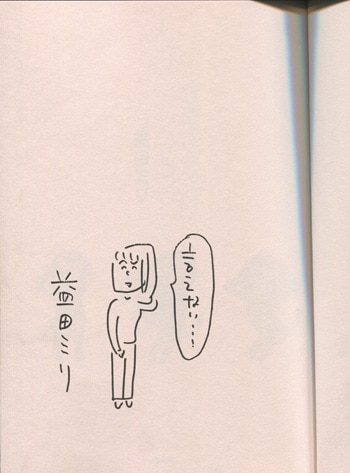 言えない…
益田ミリ